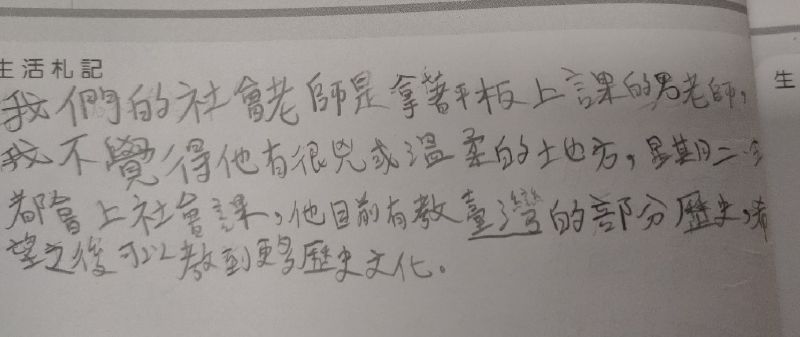 生活札記
生
我們的社會老師是拿著平板上課的男老師,
我不覺得他有很兇或溫柔的土也方,星期二、
都會上社會課,他目前有教臺灣的部分歷史,希
望之後可以教到更多歷史文化。